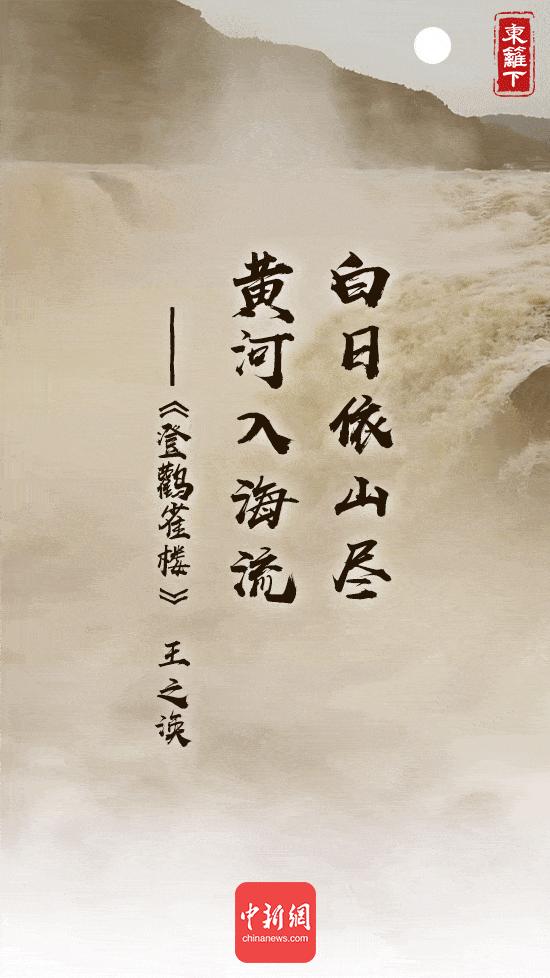 東籬下
白日依山尽
黄河入海流
——《登鹳雀楼》 王之涣
中新網
chinanews.com